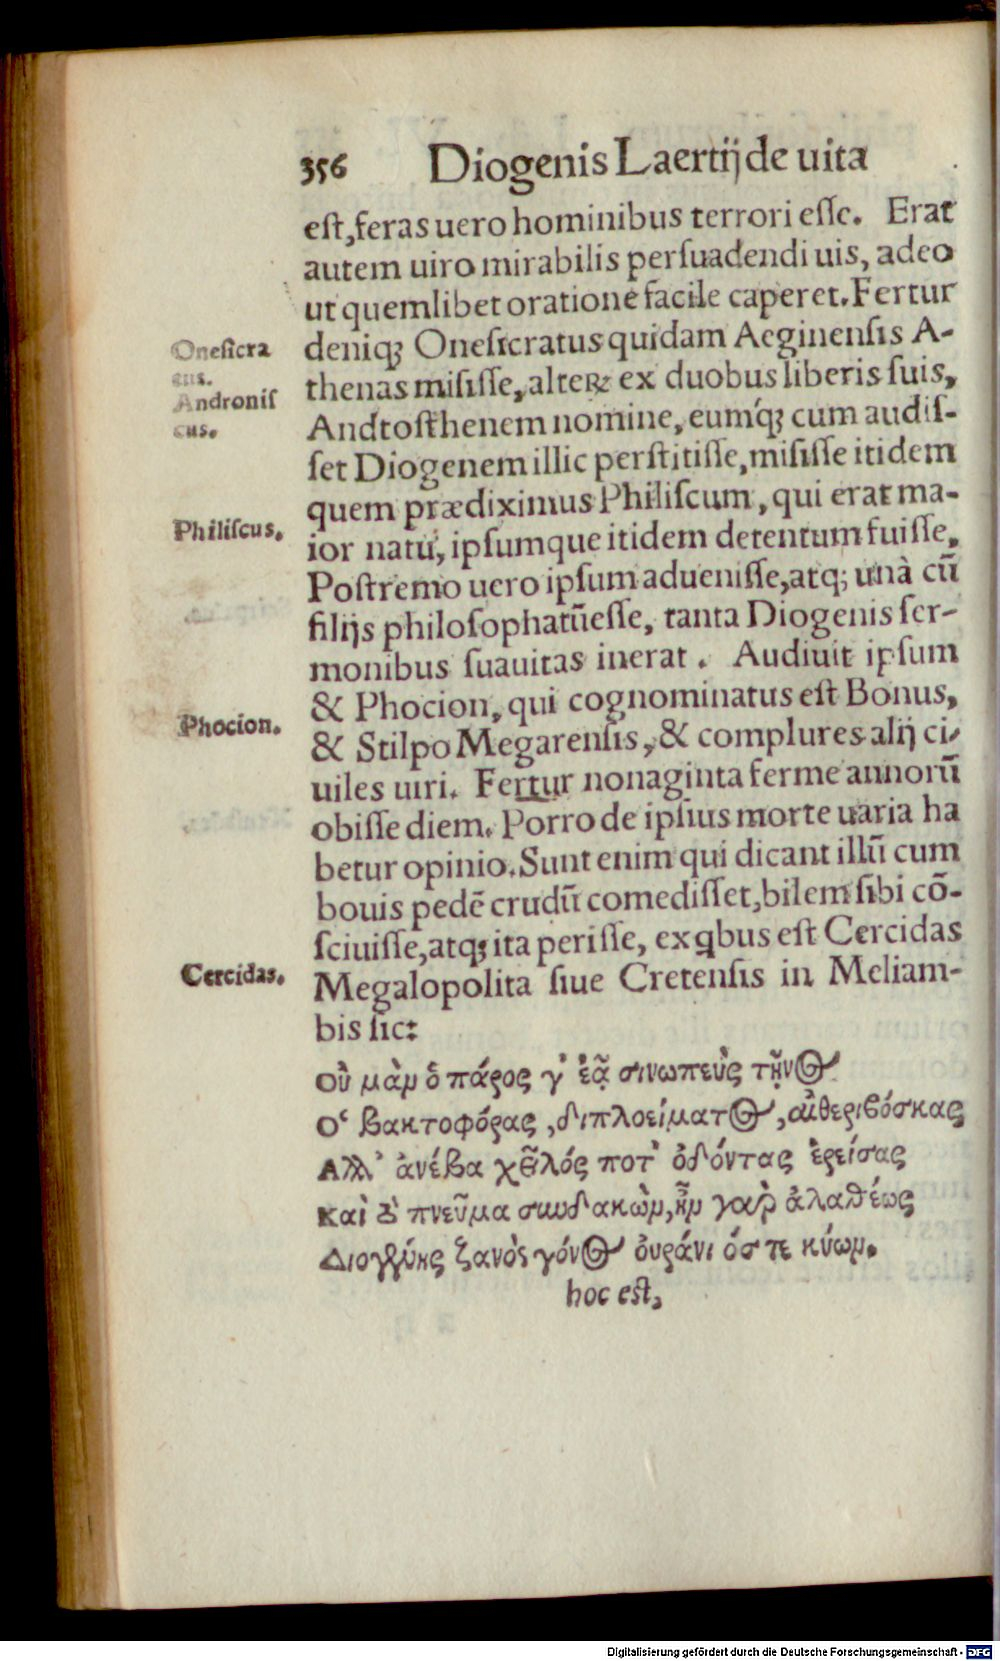 356 Diogenis Laertij de uita
est, feras uero hominibus terrori esse. Erat
autem uiro mirabilis persuadendi uis, adeo
ut quemlibet oratione facile caperet. Fertur
deniq; Onesicratus quidam Aeginensis A-
Onesicra
tus.
thenas misisse, alteꝝ ex duobus liberis suis,
Andronis
cus.
Andtosthenem nomine, eumq́; cum audis-
set Diogenem illic perstitisse, misisse itidem
quem prædiximus Philiscum, qui erat ma-
Philiscus.
ior natu, ipsumque itidem detentum fuisse.
Postremo uero ipsum aduenisse, atq; unà cũ
filijs philosophatũ esse, tanta Diogenis ser-
monibus suauitas inerat. Audiuit ipsum
& Phocion, qui cognominatus est Bonus,
Phocion.
& Stilpo Megarensis, & complures alij ci-
uiles uiri. Fertur nonaginta ferme annorũ
obisse diem. Porro de ipsius morte uaria ha
betur opinio. Sunt enim qui dicant illũ cum
bouis pedẽ crudũ comedisset, bilem sibi cõ-
sciuisse, atq; ita perisse, ex qbus est Cercidas
Cercidas.
Megalopolita siue Cretensis in Meliam-
bis sic:
οὐ μὰν ὁ πάρος γ' ἐᾷ σινωπεὺς τῆνος
Ὁ βακτοφόρας, διπλοείματος, αἰθεριβόσκας
Ἀλλ' ἀνέβα χεῖλός ποτ' ὀδόντας ἐρείσας
Καὶ τὸ πνεῦμα συνδακὼν, ἦν γαὰρ ἀλαθέως
Διογένης ζανὸς γόνος οὐράνιός τε κύων.
hoc est,
Digitalisierung gefördert durch die Deutsche Forschungsgemeinschaft - DFG